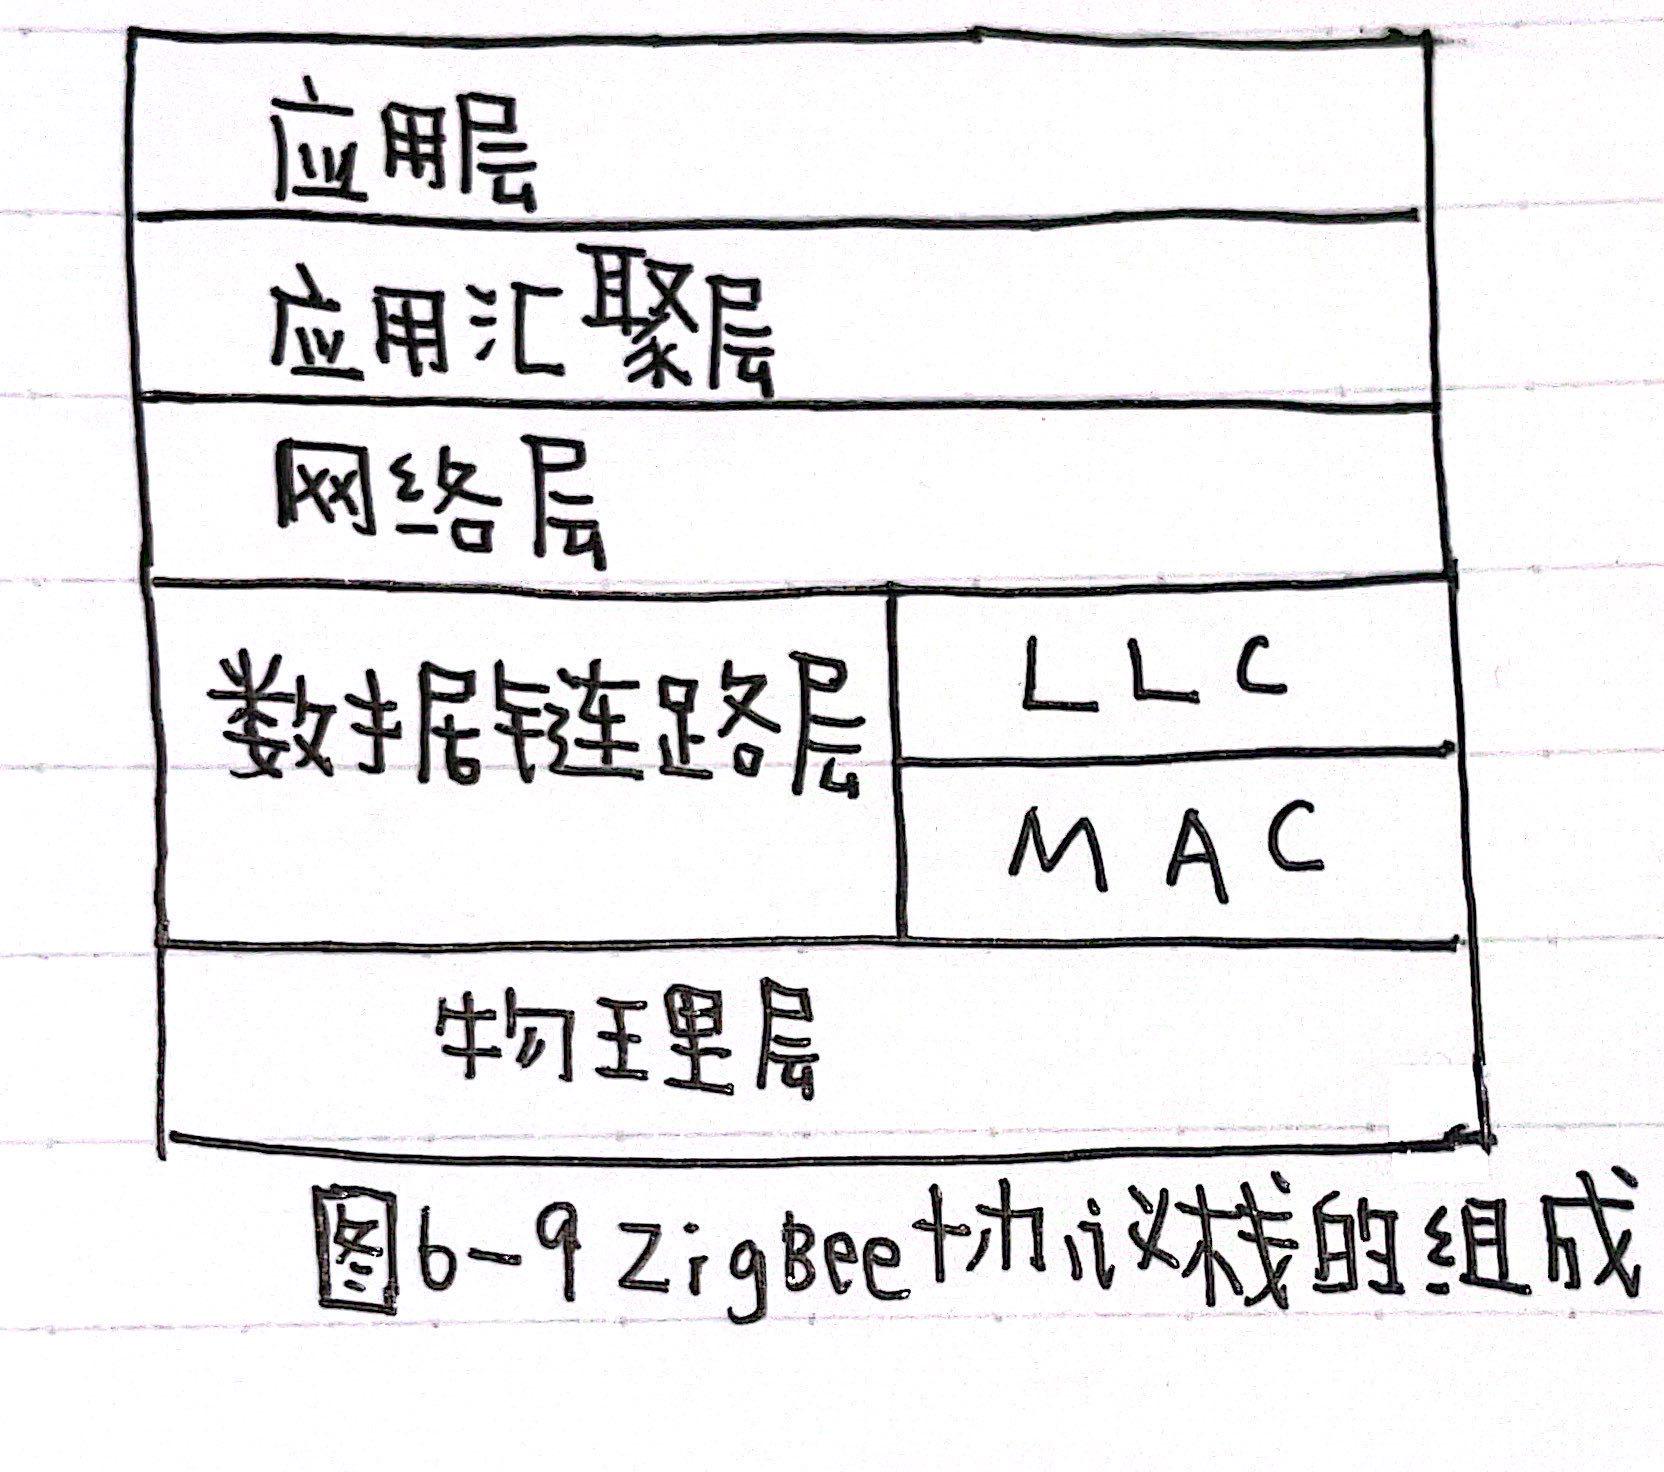 应用层
应用汇聚层
网络层
数据链路层
LLC
MAC
物理层
图6-9 ZigBee协议栈的组成